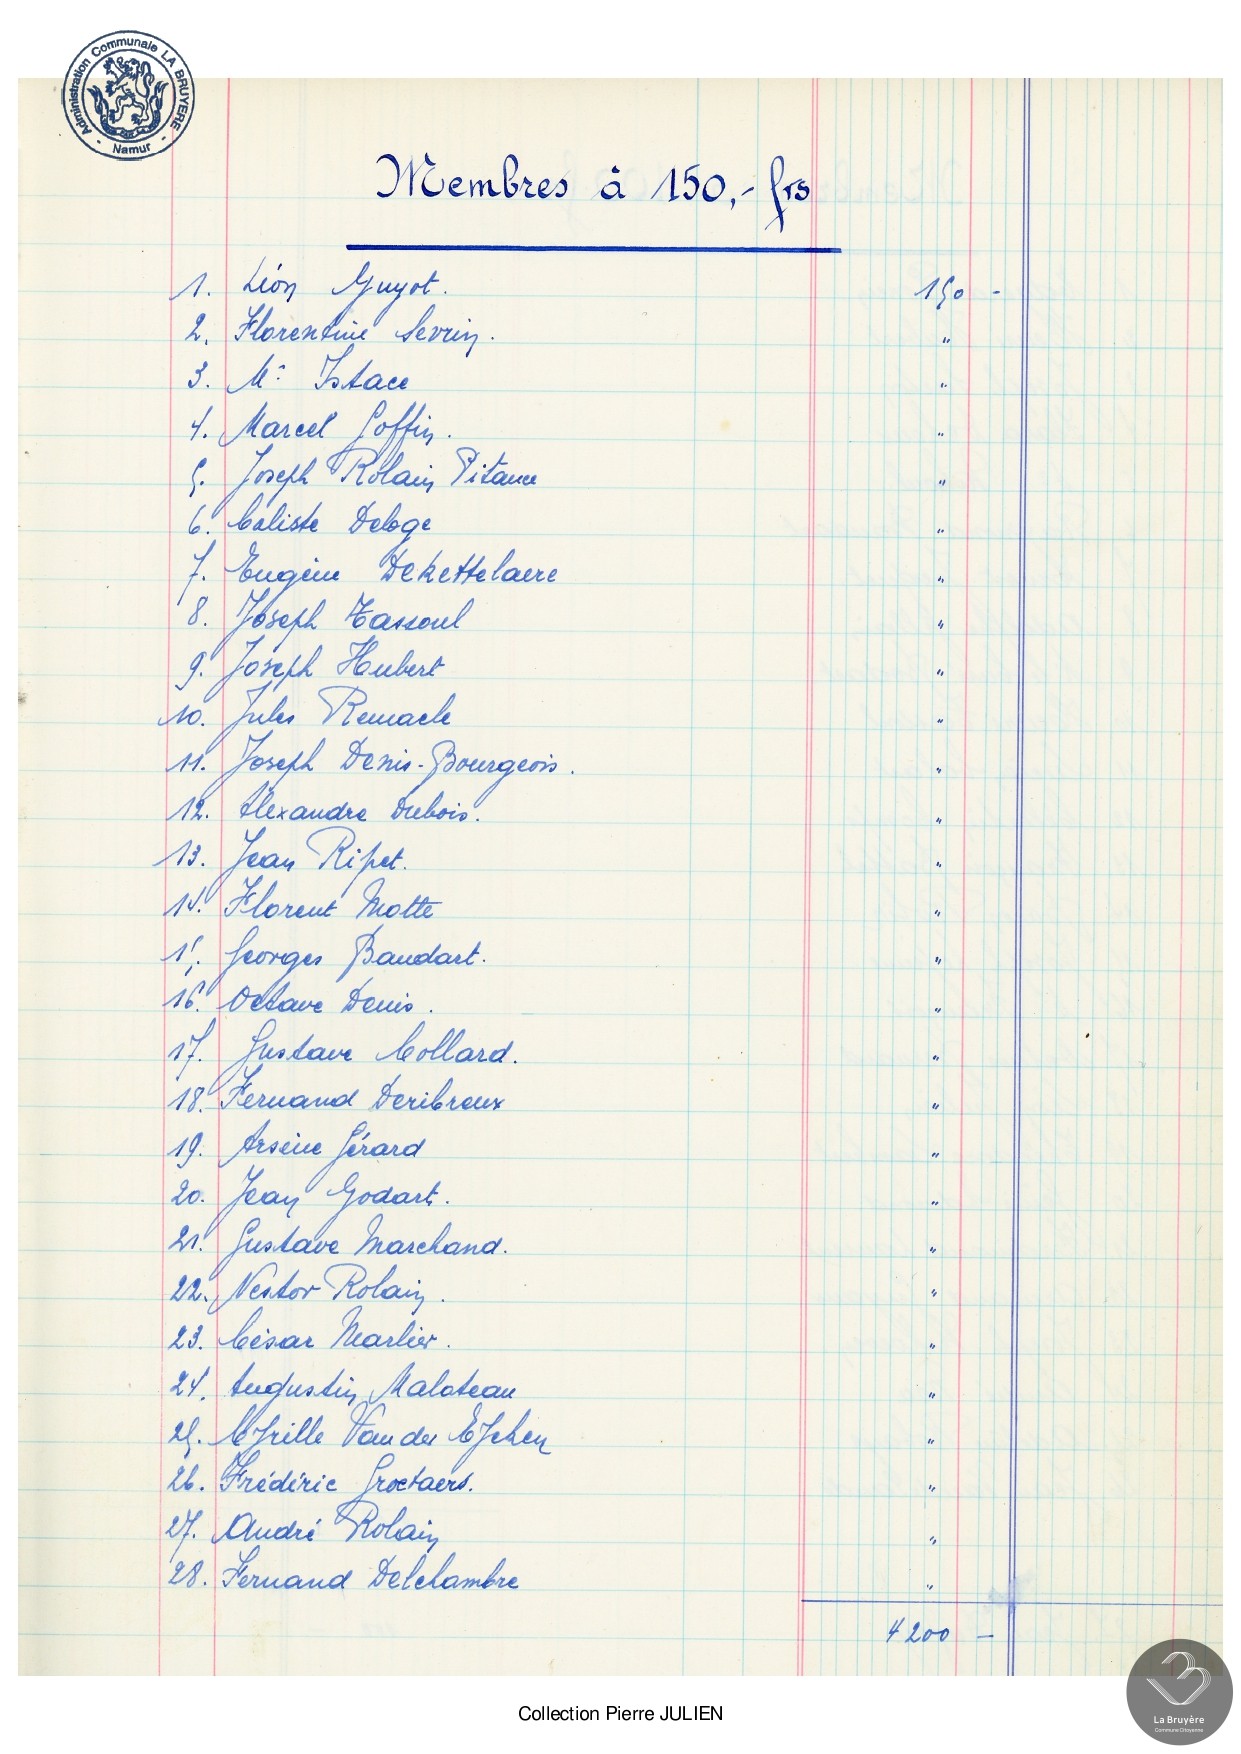 Administration Communale LA BRUYERE
- Namur -
Membres à 150,- frs
1. Léon Guyot. 150 -
2. Florentine Sevrin. "
3. Mr Istace "
4. Marcel Goffin. "
5. Joseph Rolain Pitance "
6. Caliste Deloge "
7. Eugène Dekettelaere "
8. Joseph Tassoul "
9. Joseph Hubert "
10. Jules Remacle "
11. Joseph Denis-Bourgeois. "
12. Alexandre Dubois. "
13. Jean Ripet. "
14. Florent Motte "
15. Georges Baudart. "
16. Octave Denis. "
17. Gustave Collard. "
18. Fernand Deribreux "
19. Arsène Gérard "
20. Jean Godart. "
21. Gustave Marchand. "
22. Nestor Rolain. "
23. César Marlier. "
24. Augustin Maloteau "
25. Cyrille Van der "
26. Frédéric Groetaers. "
27. André Rolain "
28. Fernand Delchambre "
4200 -
Collection Pierre JULIEN
La Bruyère
Commune Citoyenne